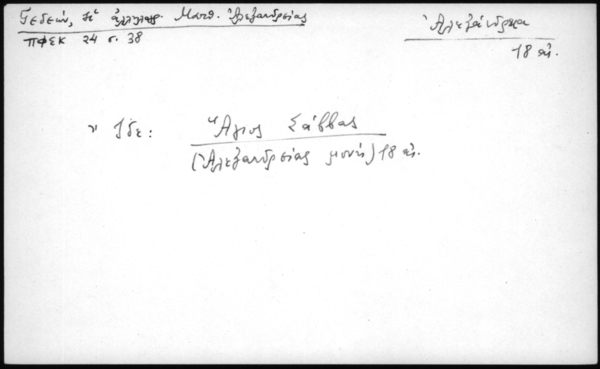 Γεδεών, Ματθ. Ἀλεξανδρείας
ΠΦΣΚ 24 σ. 38
Ἀλεξάνδρεια
18 αἰ.
" Ἴδε: Ἅγιος Σάββας
(Ἀλεξανδρείας μονή) 18 αἰ.